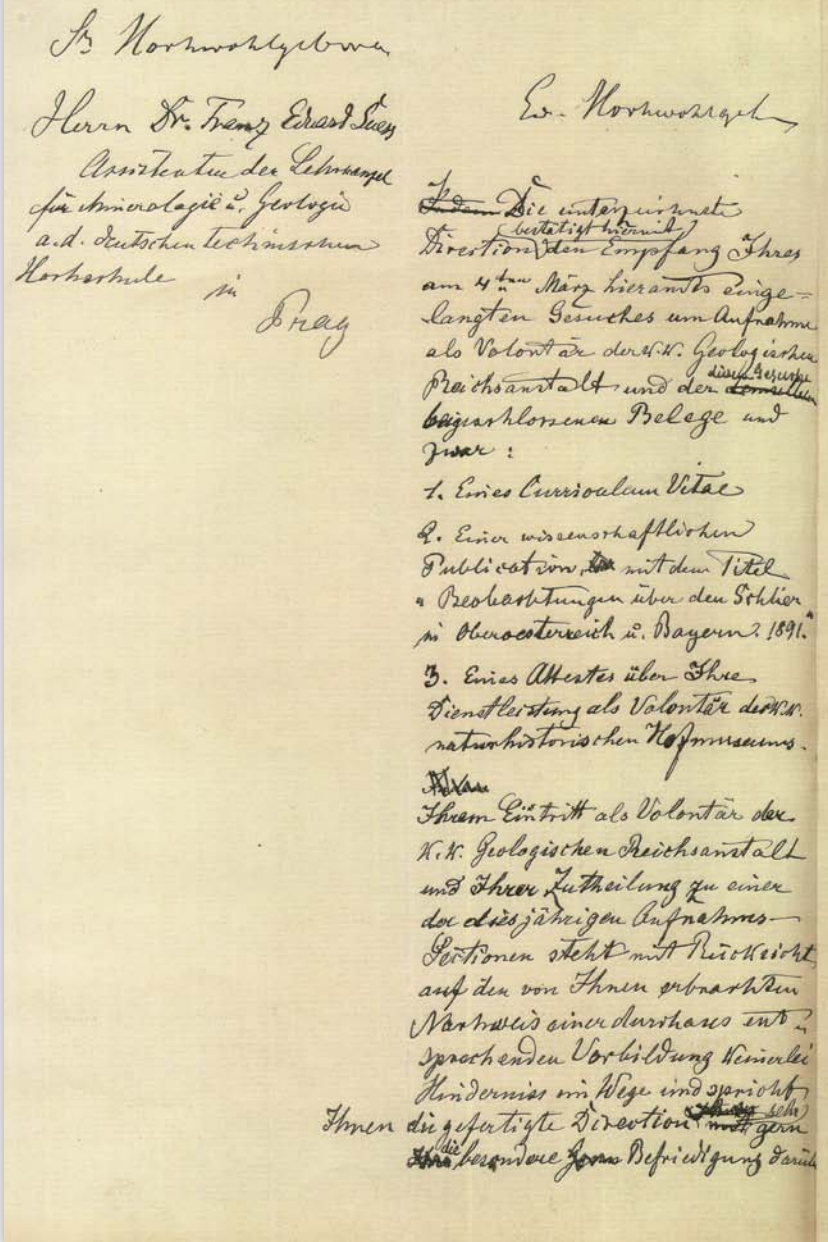 Sr Hochwohlgeboren
Herrn Dr. Franz Eduard Suess
Assistenten der Lehrkanzel
für Mineralogie u. Geologie
a. d. deutschen technischen
Hochschule
in
Prag
Ew. Hochwohlgeb
Indem Die unterzeichnete
bestätigt hiermit
Direction den Empfang Ihres
am 4ten März hieramts einge=
langten Gesuches um Aufnahme
als Volontär der k.k. Geologischen
diesem Gesuche
Reichsanstalt und der demselben
beigeschlossenen Belege und
zwar :
1. Eines Curriculum Vitae
2. Einer wissenschaftlichen
Publication, mit dem Titel
„Beobachtungen über den Schlier
in Oberoesterreich u. Bayern. 1891."
3. Eines Attestes über Ihre
Dienstleistung als Volontär des k.k.
naturhistorischen Hofmuseums.
Ihrem Eintritt als Volontär der
K.K. Geologischen Reichsanstalt
und Ihrer Zutheilung zu einer
der diesjährigen Aufnahms-
Sectionen steht mit Rücksicht
auf den von Ihnen erbrachten
Nachweis einer durchaus ent=
sprechenden Vorbildung keinerlei
Hinderniss im Wege und spricht
sehr
Ihnen die gefertigte Direction gern
die
besondere Befriedigung darüber